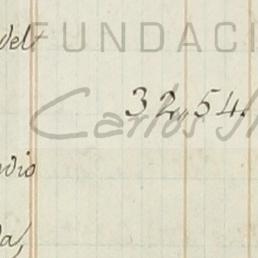 del
FUNDACI
32,,54.
Carlos
dio
da,